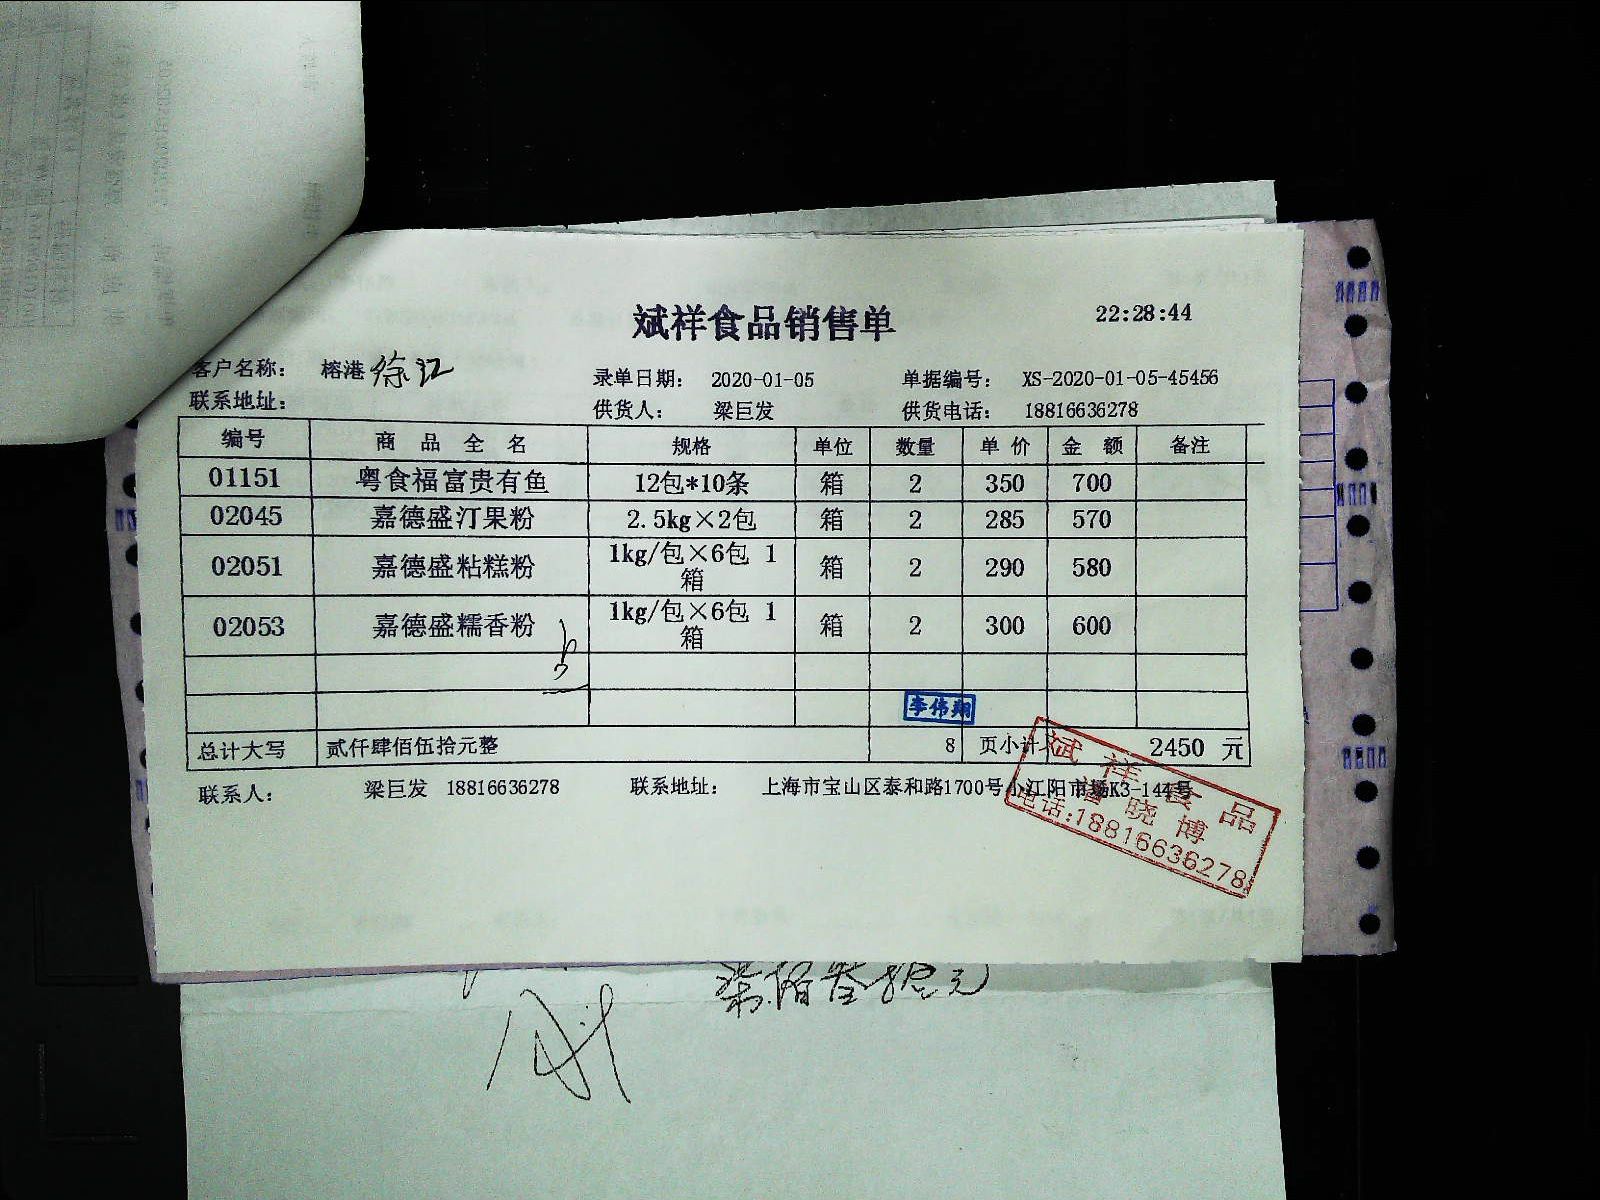 斌祥食品销售单 22:28:44
客户名称： 榕港 徐汇 录单日期： 2020-01-05 单据编号： XS-2020-01-05-45456
联系地址： 供货人： 梁巨发 供货电话： 18816636278
编号 商 品 全 名 规格 单位 数量 单 价 金 额 备注
01151 粤食福富贵有鱼 12包*10条 箱 2 350 700
02045 嘉德盛汀果粉 2.5kg×2包 箱 2 285 570
02051 嘉德盛粘糕粉 1kg/包×6包 1箱 箱 2 290 580
02053 嘉德盛糯香粉 1kg/包×6包 1箱 箱 2 300 600
李伟翔
总计大写 贰仟肆佰伍拾元整 8 页小计 2450 元
联系人： 梁巨发 18816636278 联系地址： 上海市宝山区泰和路1700号小江阳市场K3-144号
斌祥食品
潘晓博
电话:18816636278
柒佰叁拾元